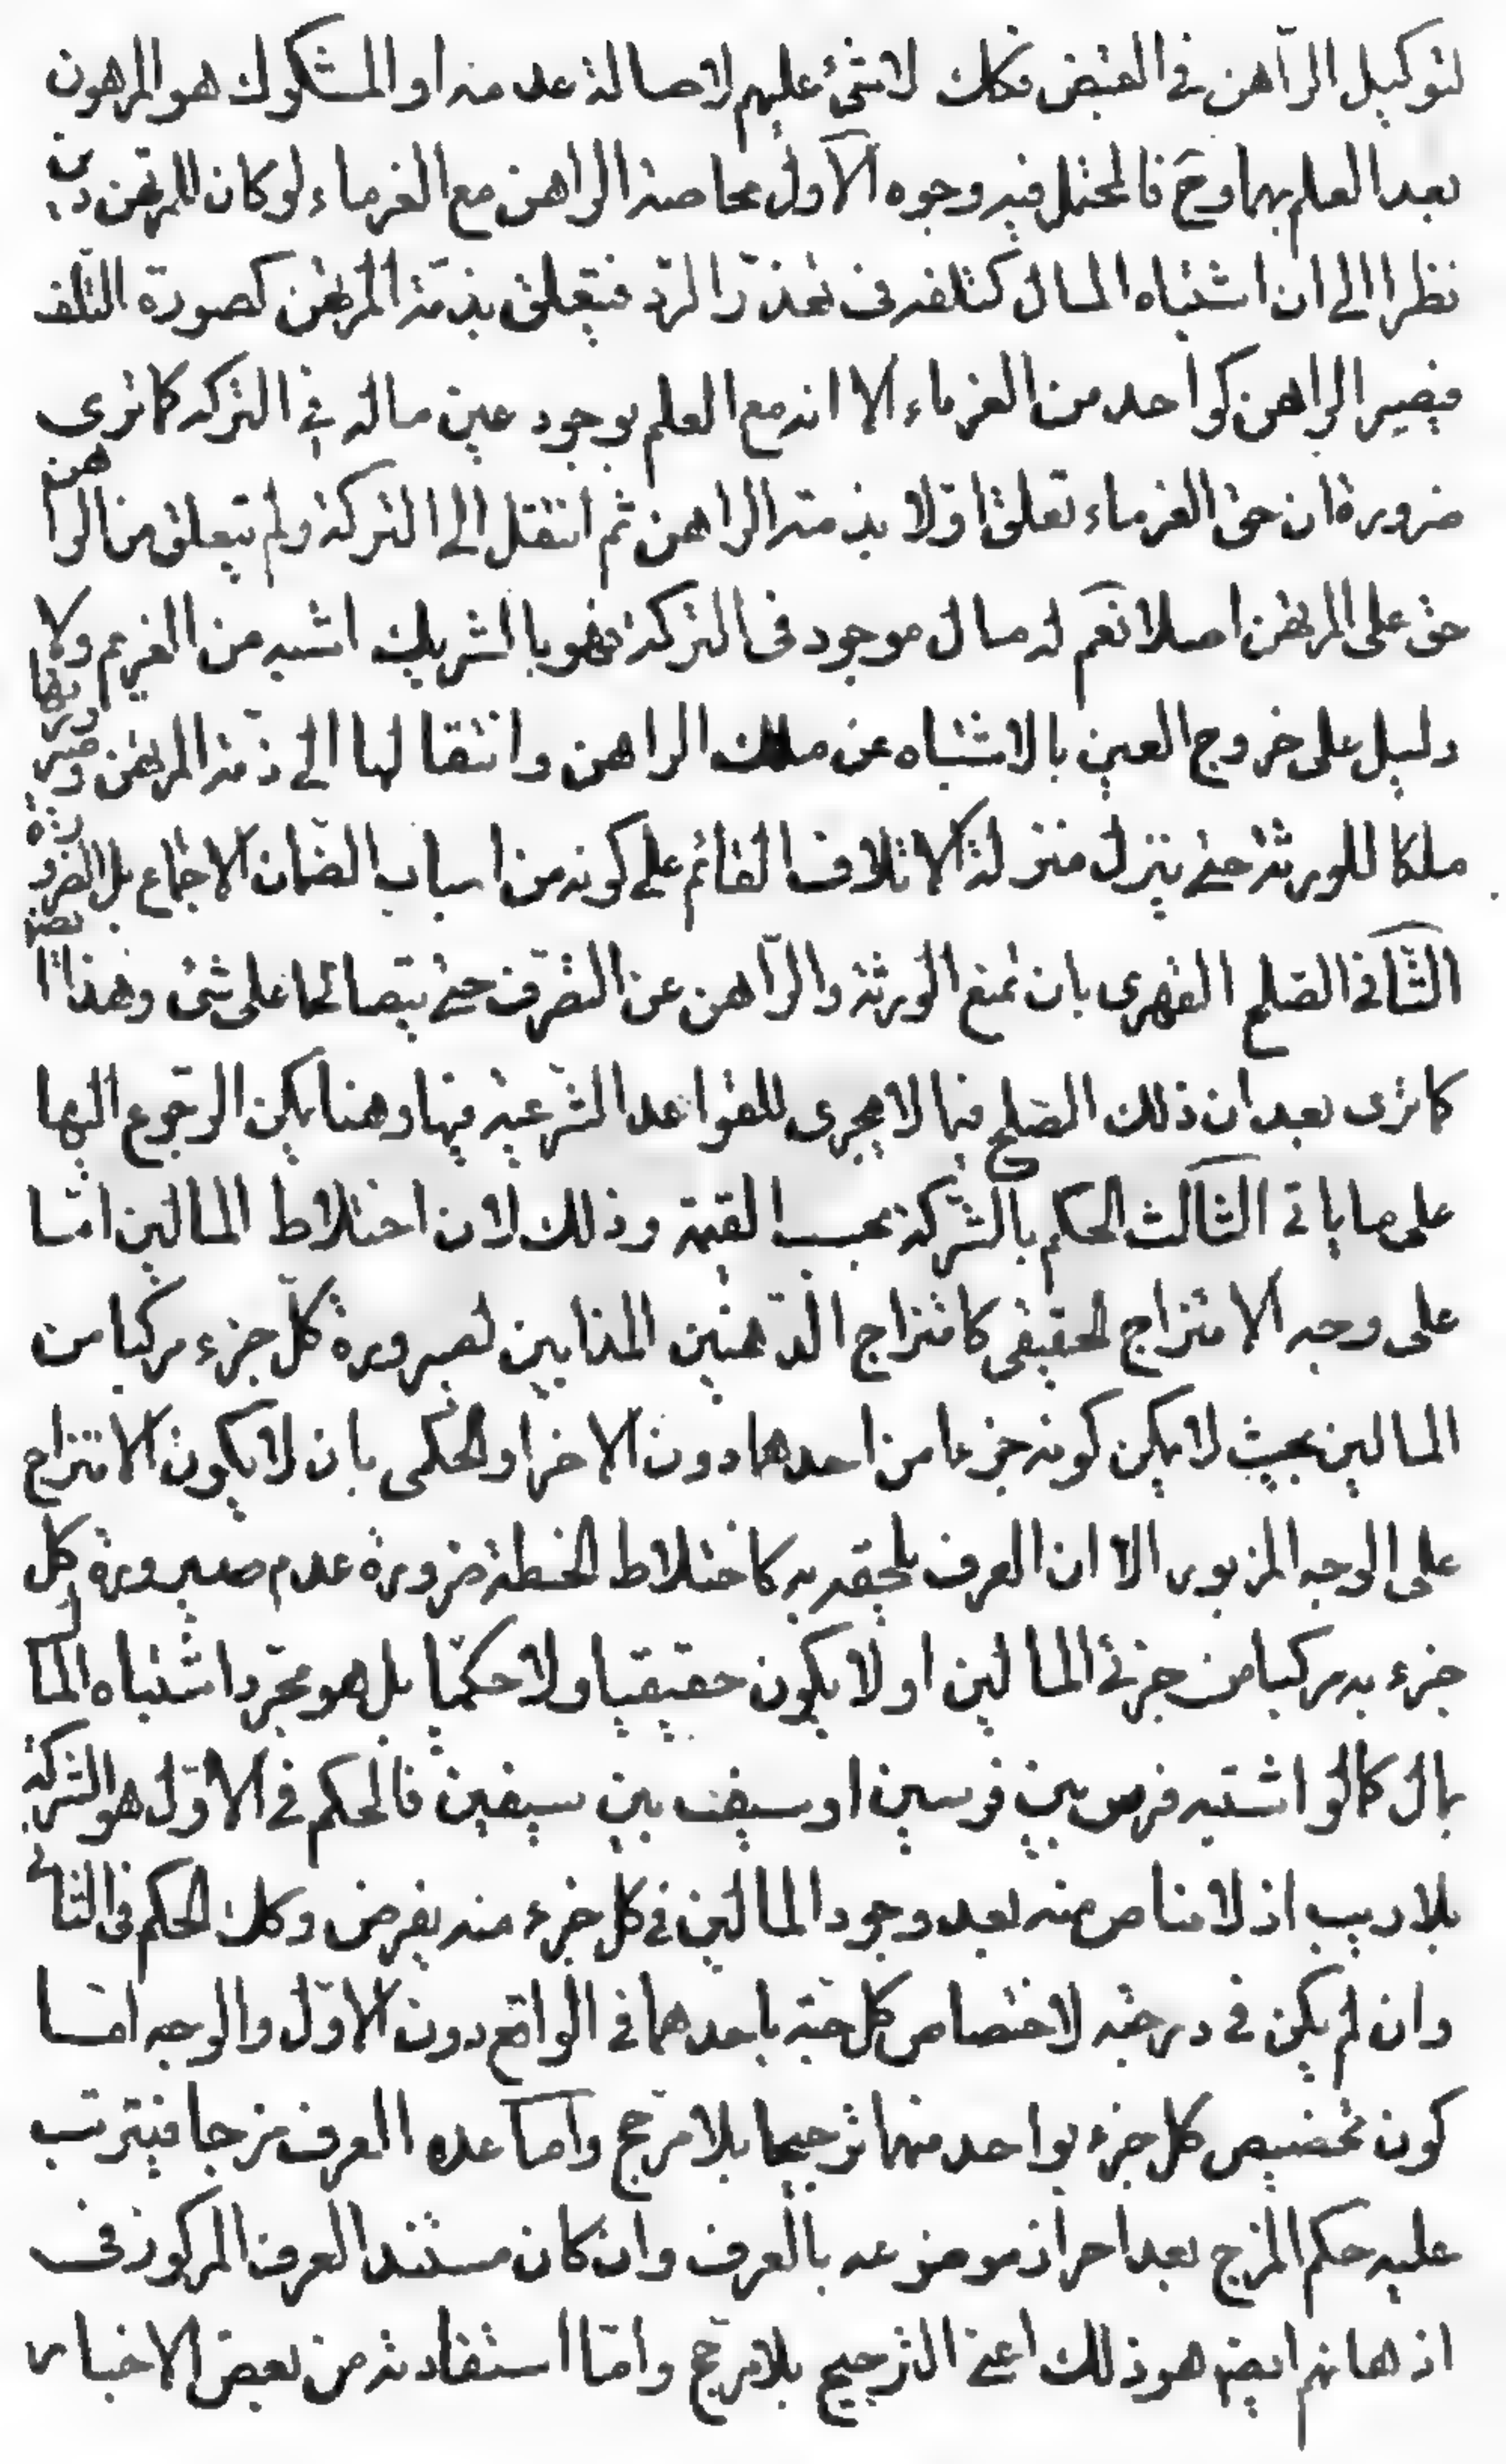 لتوكيل الرّاهن فى القبض فكك لا شئ عليهم لاصالة عدمه او المشكوك هو المرهون
بعد العلم بهما وح فالمحتمل فيه وجوه الآول محاصة الراهن مع الغرماء لو كان للمرتهن دين
نظرا الى ان اشتباه المال كتلفه فى تعذّر الردّ فيتعلق بذمّة المرتهن كصورة التّلف
فيصير الراهن كواحد من الغرماء الا انه مع العلم بوجود عين ماله فى التركه كما ترى
ضرورة ان حق الغرماء تعلق اوّلا بذمته الراهن ثم انتقل الى التركة ولم يتعلق من الراهن
حق على المرتهن اصلا نعم له مال موجود فى التركة فهو بالشريك اشبه من الغريم ولا
دليل على خروج العين بالاشتباه عن ملك الراهن وانتقالها الى ذمّة المرتهن وصيرورتها
ملكا للورثة حتى ينزل منزلة الاتلاف القائم على كونه من اسباب الضّمان الاجماع بل الضرورة
الثّانى الصّلح القهرى بان يمنع الورثة والرّاهن عن التصّرف حتى يتصالحا على شئ وهذا ايضا
كما ترى بعد ان ذلك الصّلح فيما لا مجرى للقواعد الشّرعيّة فيها وهنا يمكن الرّجوع اليها
على ما ياتى الثّالث الحكم بالشّركة بحسب القيمة وذلك لان اختلاط المالين امّا
على وجه الامتزاج الحقيقى كامتزاج الدّهنين المذابين لصيرورة كلّ جزء مركبا من
المالين بحيث لا يمكن كونه جزءا من احدهما دون الاخر او الحكمى بان لا يكون الامتزاج
على الوجه المزبور الا ان العرف يلحقه به كاختلاط الحنطة ضرورة عدم صيرورة كل
جزء به مركبا من جزئى المالين او لا يكون حقيقيا ولا حكميّا بل هو مجرّد اشتباه المال
بمال كما لو اشتبه فرس بين فرسين او سيف بين سيفين فالحكم فى الاوّل هو الشركة
بلا ريب اذ لا مناص منه بعد وجود المالين فى كل جزء منه يفرض وكك الحكم فى الثانى
وان لم يكن فى درجته لاختصاص كل حبّة باحدهما فى الواقع دون الاوّل والوجه امّا
كون تخصيص كل جزء بواحد منهما ترجيحا بلا مرجّح وامّا عدّه العرف مزجا فيترتب
عليه حكم المزج بعد احراز موضوعه بالعرف وان كان مستند العرف المركوز فى
اذهانهم ايضه هو ذلك اعنى الترجيح بلا مرجّح وامّا استفادته من بعض الاخبار